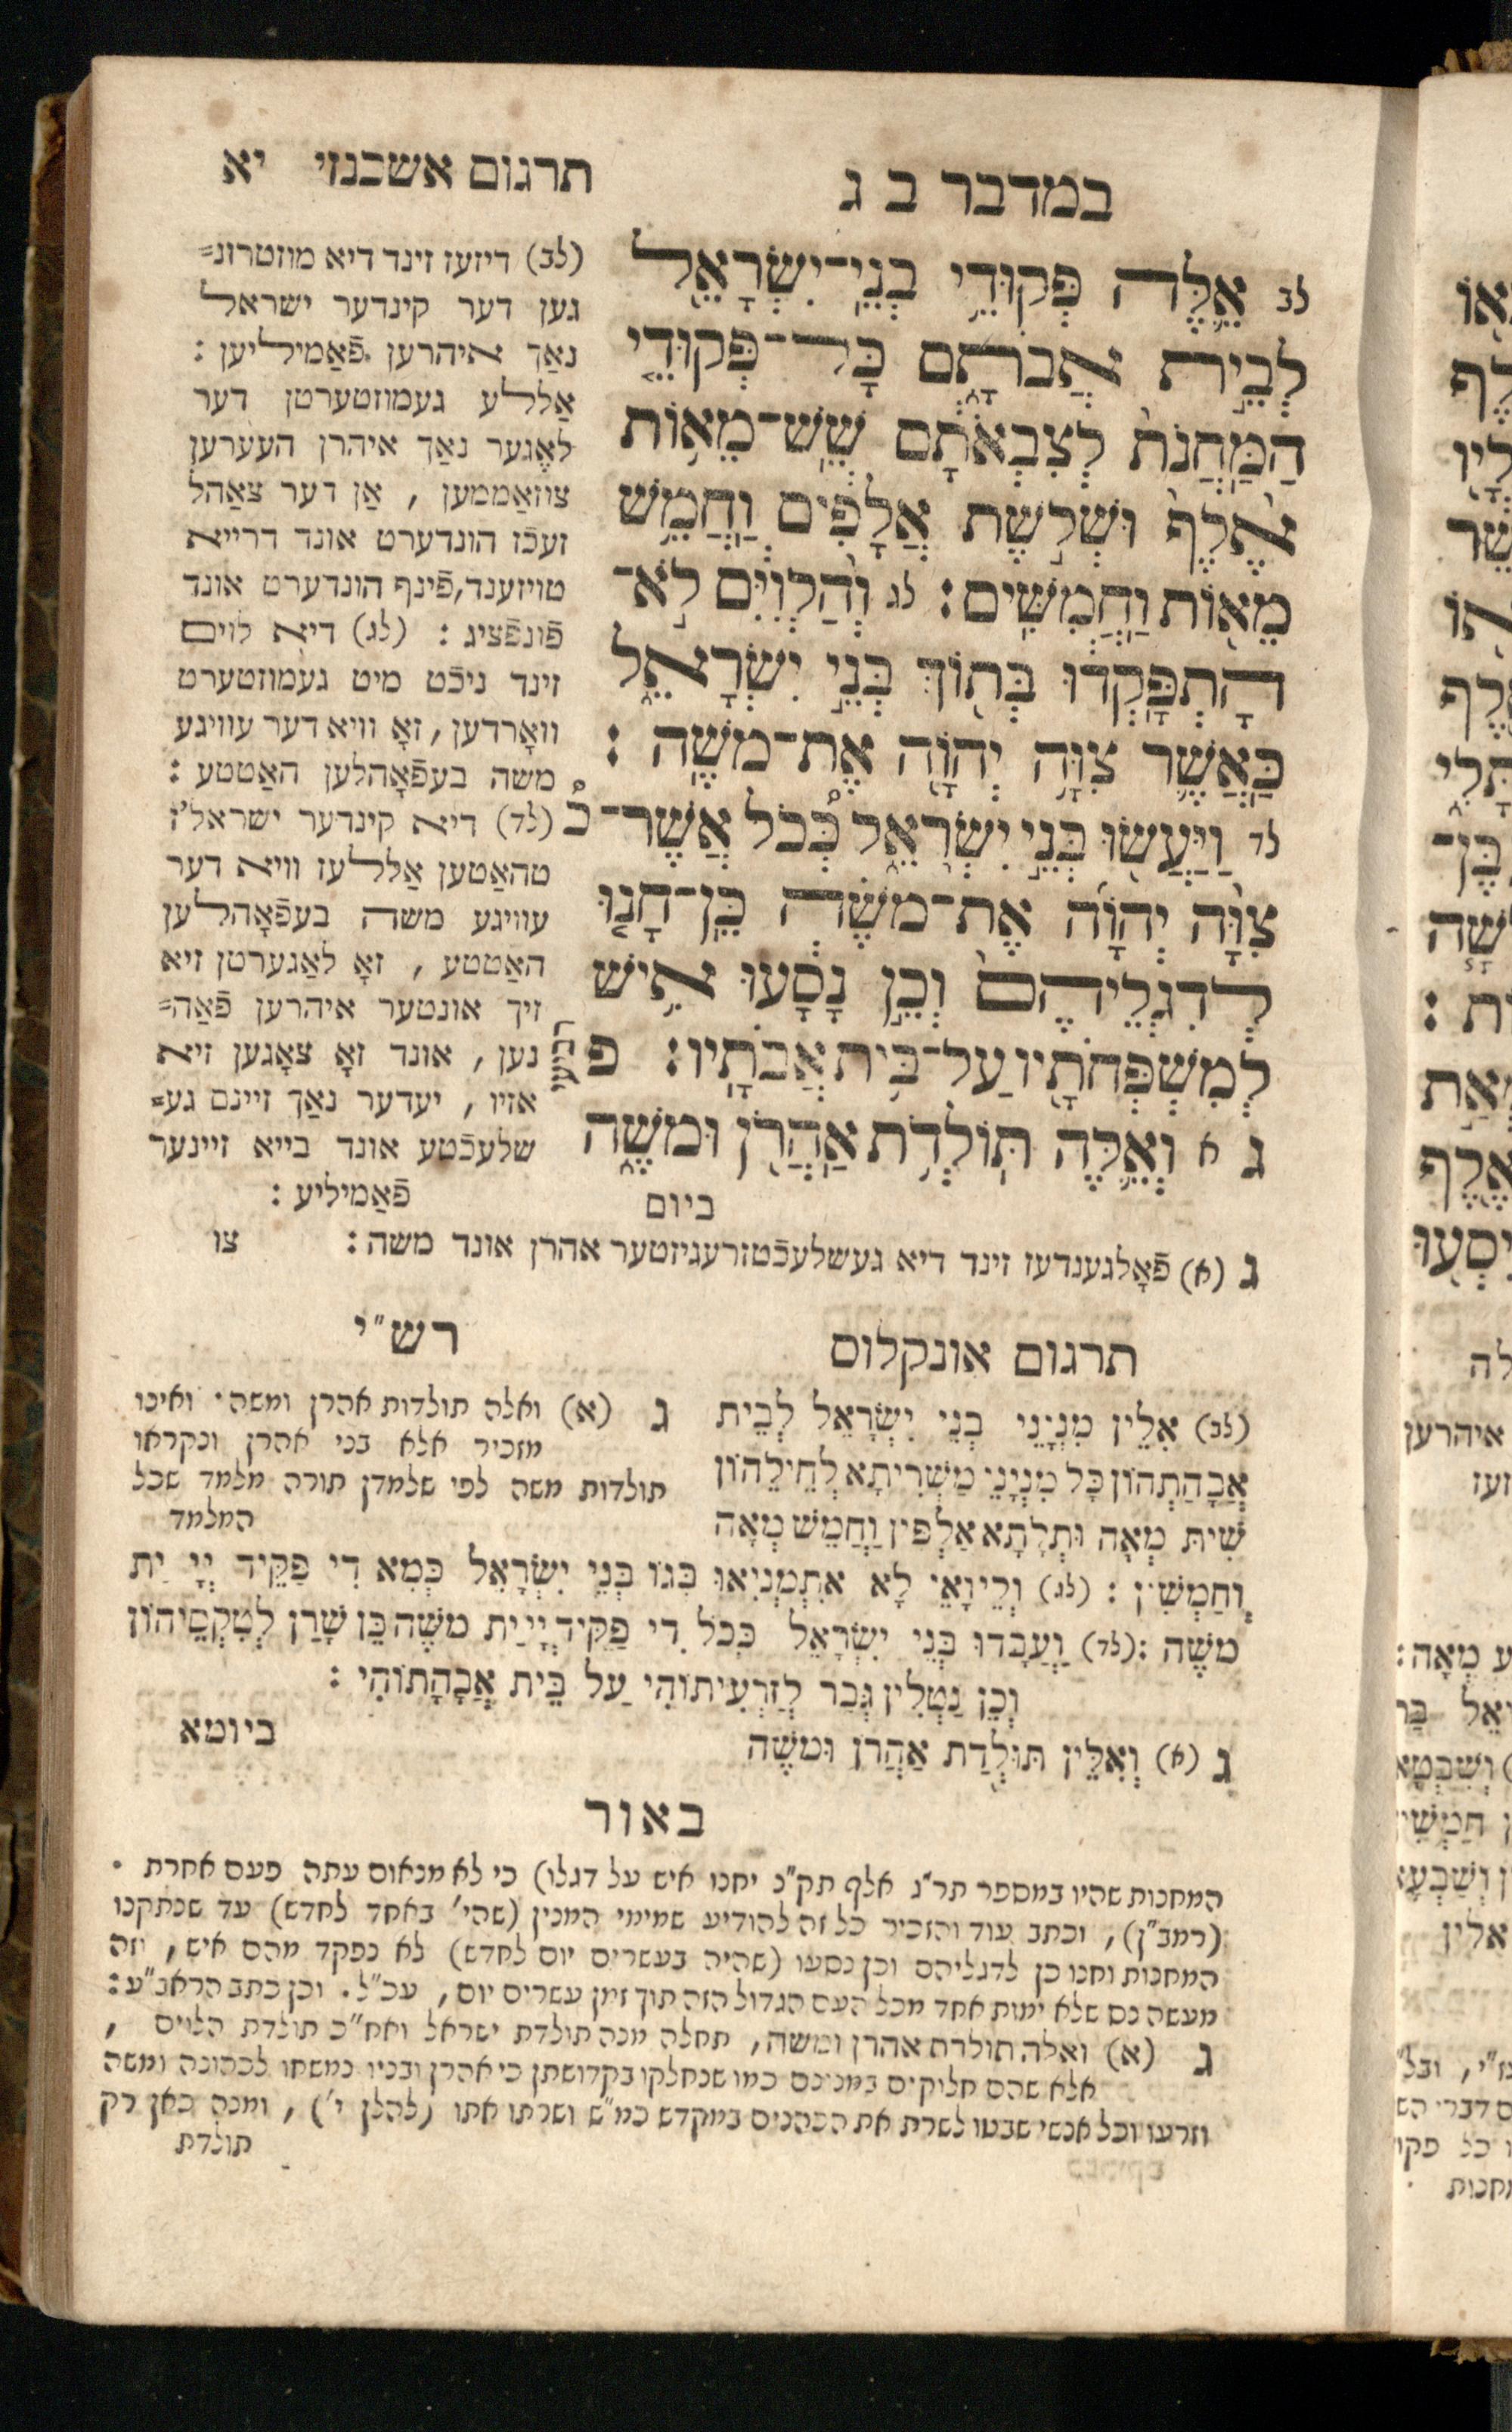 במדבר ב ג
תרגום אשכנזי יא
לב אֵ֛לֶּה פְּקוּדֵ֥י בְנֵֽי־יִשְׂרָאֵ֖ל
לְבֵ֣ית אֲבֹתָ֑ם כָּל־פְּקוּדֵ֤י
הַֽמַּחֲנֹת֙ לְצִבְאֹתָ֔ם שֵׁשׁ־מֵא֥וֹת
אֶ֙לֶף֙ וּשְׁלֹ֣שֶׁת אֲלָפִ֔ים וַחֲמֵ֥שׁ
מֵא֖וֹת וַחֲמִשִּֽׁים׃ לג וְהַ֙לְוִיִּ֔ם לֹ֣א־
הָתְפָּֽקְד֔וּ בְּת֖וֹךְ בְּנֵ֣י יִשְׂרָאֵ֑ל
כַּאֲשֶׁ֛ר צִוָּ֥ה יְהוָ֖ה אֶת־משֶֽׁה׃
לד וַֽיַּעֲשׂ֖וּ בְּנֵ֣י יִשְׂרָאֵ֑ל כְּ֠כֹל אֲשֶׁר־ כ
צִוָּ֨ה יְהוָ֜ה אֶת־משֶׁ֗ה כֵּֽן־חָנ֤וּ
לְדִגְלֵיהֶם֙ וְכֵ֣ן נָסָ֔עוּ אִ֥ישׁ
לְמִשְׁפְּחֹתָ֖יו עַל־בֵּ֥ית אֲבֹתָֽיו׃ פ
ג א וְאֵ֛לֶּה תּוֹלְדֹ֥ת אַהֲרֹ֖ן וּמשֶׁ֑ה
ביום
(לב) דיזעז זינד דיא מוזטרונ=
גען דער קינדער ישראל
נאַך איהרען פֿאַמיליען :
אַללע געמוזטערטן דער
לאָגער נאַך איהרן העערען
צוזאַממען , אַן דער צאַהל
זעכֿז הונדערט אונד דרייא
טויזענד, פֿינף הונדערט אונד
פֿונפֿציג : (לג) דיא לוים
זינד ניכֿט מיט געמוזטערט
וואָרדען, זאָ וויא דער עוויגע
משה בעפֿאָהלען האַטטע :
(לד) דיא קינדער ישראל'ז
טהאַטען אַללעז וויא דער
עוויגע משה בעפֿאָהלען
האַטטע , זאָ לאַגערטן זיא
זיך אונטער איהרען פֿאַה=
נען , אונד זאָ צאָגען זיא
אזיו , יעדער נאַך זיינם גע=
שלעכֿטע אונד בייא זיינער
פֿאַמיליע :
ג (א) פֿאָלגענדעז זינד דיא געשלעכֿטזרעגיזטער אהרן אונד משה : צו
תרגום אונקלוס
(לב) אִלֵין מִנְיָנֵי בְנֵי יִשְׂרָאֵל לְבֵית
אֲבָהַתְהוֹן כָּל מִנְיָנֵי מַשְׁרִיתָא לְחֵילֵהוֹן
שִׁית מְאָה וּתְלָתָא אַלְפִין וַחֲמֵשׁ מְאָה
וְחַמְשִׁין : (לג) וְלֵיוָאֵי לָא אִתְמְנִיאוּ בְּגוֹ בְּנֵי יִשְׂרָאֵל כְּמָא דִי פַקֵּיד יְיָ יַת
משֶׁה : (לד) וַעֲבָדוּ בְּנֵי יִשְׂרָאֵל כְּכֹל דִי פַקֵּיד יְיָ יַת משֶׁה כֵּן שָׁרַן לְטִקְסֵיהוֹן
וְכֵן נַטְלִין גְּבַר לְזַרְעֲיָתוֹהִי עַל בֵּית אֲבָהָתוֹהִי :
ג (א) וְאִלֵּין תּוּלְדַת אַהֲרֹן וּמשֶׁה
ביומא
רש"י
ג (א) ואלה תולדות אהרן ומשה · ואינו
מזכיר אלא בני אהרן ונקראו
תולדות משה לפי שלמדן תורה מלמד שכל
המלמד
באור
המחנות שהיו במספר תר"ג אלף תק"נ יחנו איש על דגלו) כי לא מנאום עתה פעם אחרת .
(רמב"ן), וכתב עוד והזכיר כל זה להודיע שמימי המנין (שהי' באחד לחדש) עד שנתקנו
המחנות וחנו כן לדגליהם וכן נסעו (שהיה בעשרים יום לחדש) לא נפקד מהם איש, וזה
מעשה נס שלא ימות אחד מכל העם הגדול הזה תוך זמן עשרים יום, עכ"ל. וכן כתב הראב"ע :
ג (א) ואלה תולדת אהרן ומשה, תחלה מנה תולדת ישראל ואח"כ תולדת הלוים ,
אלא שהם חליקים במנינם כמו שנחלקו בקדושתן כי אהרן ובניו נמשחו לכהונה ומשה
וזרעו וכל אנשי שבטו לשרת את הכהנים במקדש כמ"ש ושרתו אתו (להלן י'), ומנה כאן רק
תולדת